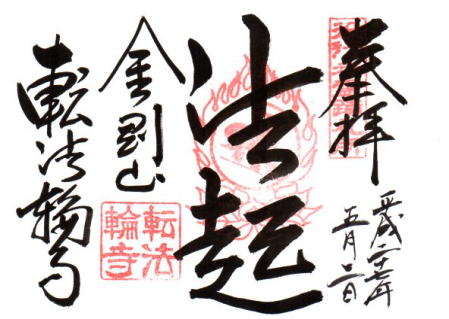 奉拝
平成二十七年
五月
法起
金剛山
転法
輪寺
転法輪寺